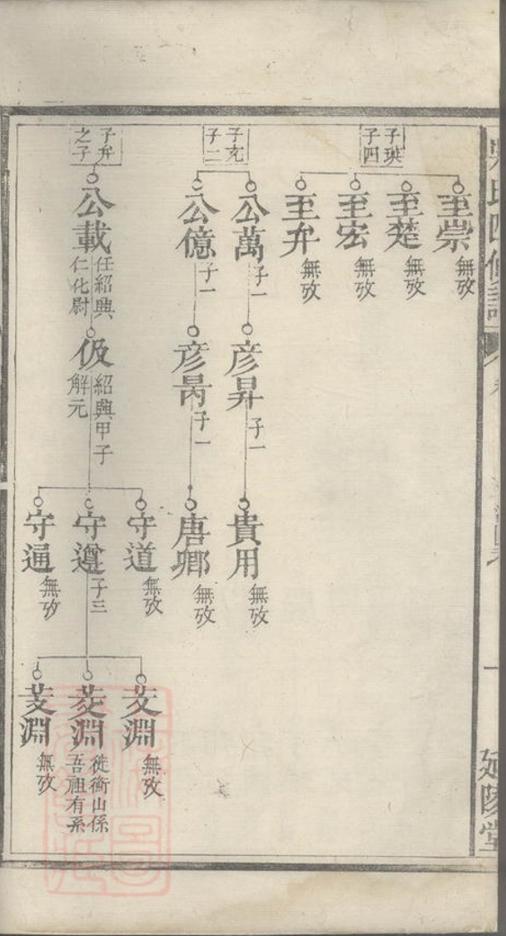 子璵
子四
至崇 無攷
至楚 無攷
至宏 無攷
至弁 無攷
子充
子二
公萬 子一
彦昇 子一
貴用 無攷
公億 子一
彦昺 子一
唐卿 無攷
子弁
之子
公載 任紹興
仁化尉
伋 紹興甲子
解元
守道 無攷
守遵 子三
守通 無攷
文淵 無攷
淵 徙衡山係
吾祖有系
淵 無攷
氏四修
延陵堂